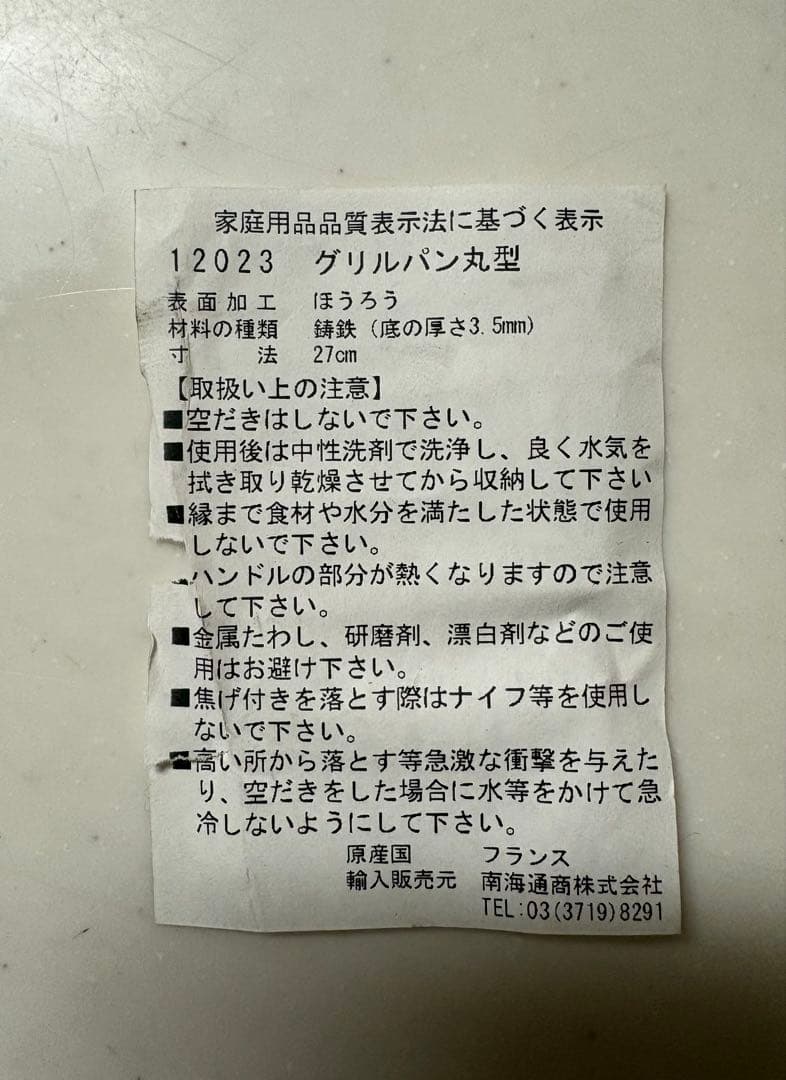 家庭用品品質表示法に基づく表示
12023 グリルパン丸型
表面加工 ほうろう
材料の種類 鋳鉄(底の厚さ3.5mm)
寸法 27cm
【取扱い上の注意】
■空だきはしないで下さい。
■使用後は中性洗剤で洗浄し、良く水気を
拭き取り乾燥させてから収納して下さい
■縁まで食材や水分を満たした状態で使用
しないで下さい。
ハンドルの部分が熱くなりますので注意
して下さい。
■金属たわし、研磨剤、漂白剤などのご使
用はお避け下さい。
■焦げ付きを落とす際はナイフ等を使用し
ないで下さい。
■高い所から落とす等急激な衝撃を与えた
り、空だきをした場合に水等をかけて急
冷しないようにして下さい。
原産国 フランス
輸入販売元 南海通商株式会社
TEL:03(3719)8291